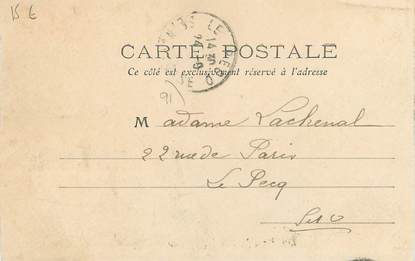 15 €
CARTE POSTALE
Ce côté est exclusivement réservé à l'adresse
Madame Lachenal
22 rue de Paris
Le Pecq
S et O